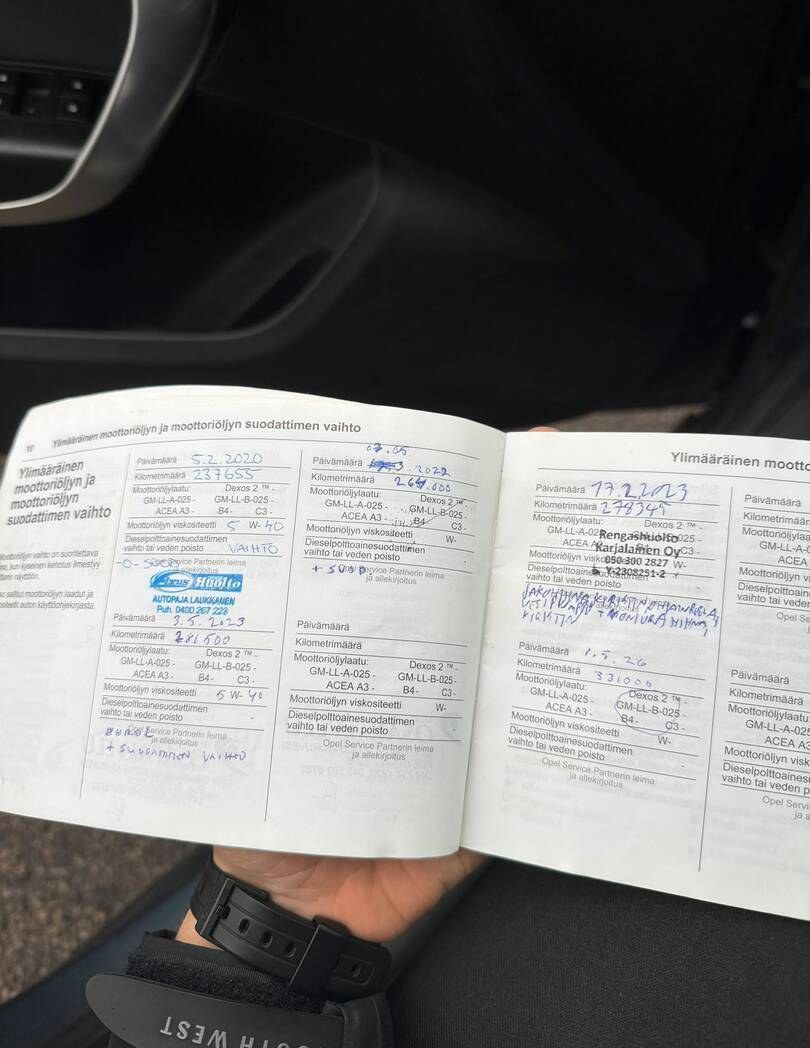 10 Ylimääräinen moottoriöljyn ja moottoriöljyn suodattimen vaihto
Ylimääräinen
moottoriöljyn ja
moottoriöljyn
suodattimen vaihto
Moottoriöljyn vaihto on suoritettava
kun kyseinen kehotus ilmestyy
näyttöön.
so sallitut moottoriöljyn laadut ja
auton käyttöohjekirjasta.
Päivämäärä 5.2.2020
Kilometrimäärä 237655
Moottoriöljylaatu: Dexos 2 ™ -
GM-LL-A-025 - GM-LL-B-025 -
ACEA A3 - B4- C3 -
Moottoriöljyn viskositeetti 5 W- 40
Dieselpolttoainesuodattimen
vaihto tai veden poisto VAIHTO
Huolto
AUTOPAJA LAUKKANEN
Puh. 0400 267 223
Päivämäärä 3.5.2023
Kilometrimäärä 281500
Moottoriöljylaatu: Dexos 2 ™ -
GM-LL-A-025 - GM-LL-B-025 -
ACEA A3 - B4- C3 -
Moottoriöljyn viskositeetti 5 W- 40
Dieselpolttoainesuodattimen
vaihto tai veden poisto
Opel Service Partnerin leima
ja allekirjoitus
+ SUODATTIMEN VAIHTO
07.05
Päivämäärä .2022
Kilometrimäärä 264.000
Moottoriöljylaatu: Dexos 2 ™ -
GM-LL-A-025 - GM-LL-B-025 -
ACEA A3 - B4- C3 -
Moottoriöljyn viskositeetti W-
Dieselpolttoainesuodattimen
vaihto tai veden poisto
Opel Service Partnerin leima
ja allekirjoitus
Päivämäärä
Kilometrimäärä
Moottoriöljylaatu: Dexos 2 ™ -
GM-LL-A-025 - GM-LL-B-025 -
ACEA A3 - B4- C3 -
Moottoriöljyn viskositeetti W-
Dieselpolttoainesuodattimen
vaihto tai veden poisto
Opel Service Partnerin leima
ja allekirjoitus
Ylimääräinen
Päivämäärä 17.2.2023
Kilometrimäärä 278345
Moottoriöljylaatu: Dexos 2 ™ -
GM-LL-A-025 - GM-LL-B-025 -
ACEA A3 - C3 -
Moottoriöljyn viskositeetti W-
Dieselpolttoainesuodattimen
vaihto tai veden poisto
Rengashuolto
Karjalainen Oy
050 300 2827
Y-2308251-2
VESIPUMPPU + MONIURAHIHNA,
KIRISTIN
Päivämäärä 1.5.26
Kilometrimäärä 331000
Moottoriöljylaatu: Dexos 2 ™ -
GM-LL-A-025 - GM-LL-B-025 -
ACEA A3 - B4- C3 -
Moottoriöljyn viskositeetti W-
Dieselpolttoainesuodattimen
vaihto tai veden poisto
Opel Service Partnerin leima
ja allekirjoitus
Päivämäärä
Moottoriöljylaatu
GM-LL-A
ACEA A3
Päivämäärä
Moottoriöljylaatu
GM-LL-A
ACEA A3
SOUTH WEST